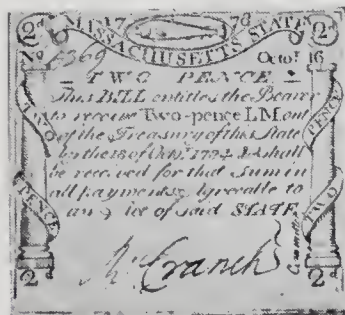 2d 17 78 2d
MASSACHUSETTS STATE
No 4369 Octor. 16
TWO PENCE.
This BILL entitles the Bearer
to receive Two-pence L.M. out
of the Treasury of this State
by the 18 of Octr. 1784 & shall
be received for that Sum in
all payments, Agreeable to
an of said STATE
TWO PENCE
PENCE TWO
Rd. Cranch
Committee
2d 2d